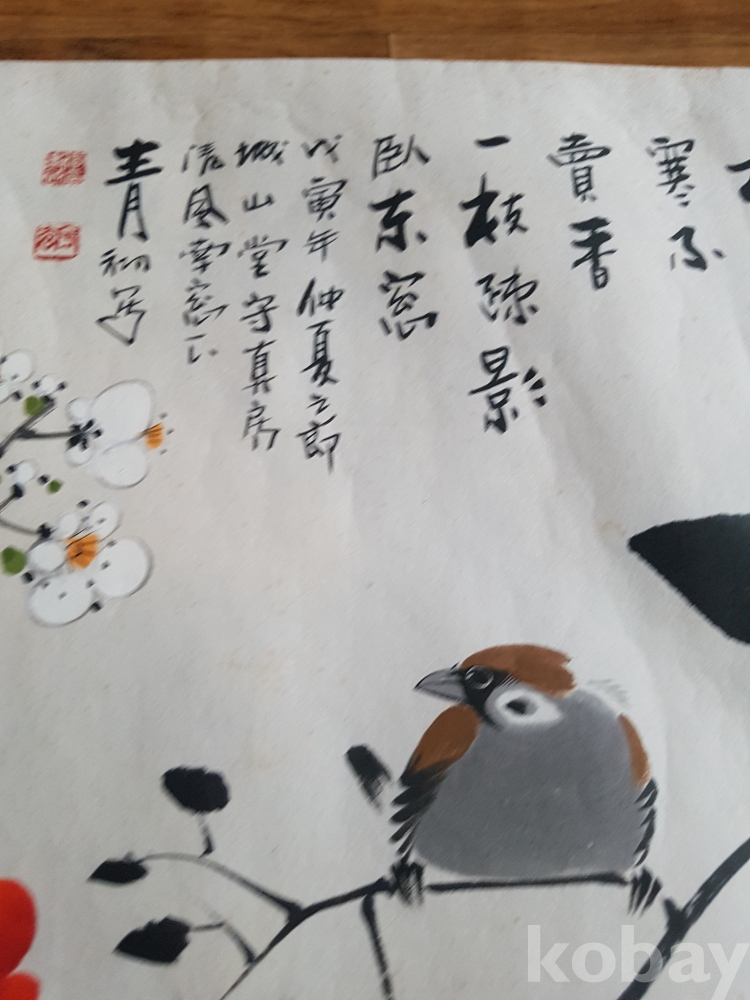 寒不
賣香
一枝疎影
臥東窓
戊寅年仲夏之節
城山堂守真房
清風雪窓下
kobay